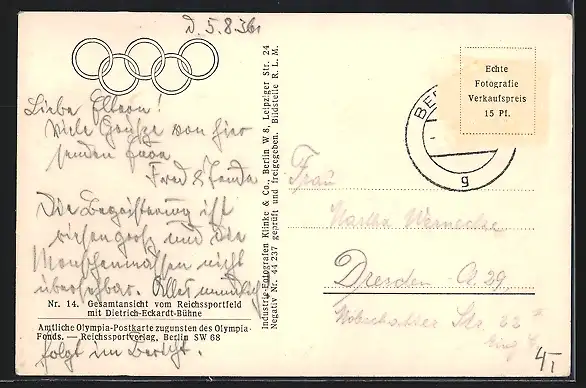 d. 5.8.36.
Liebe Eltern!
Viele Grüße von hier
senden Euch
Fred &
Die Begeisterung ist
riesengroß und die
Menschenmassen nicht
übersehbar. Alles
Nr. 14. Gesamtansicht vom Reichssportfeld
mit Dietrich-Eckardt-Bühne
Amtliche Olympia-Postkarte zugunsten des Olympia-
Fonds. — Reichssportverlag, Berlin SW 68
folgt im Bericht.
Industrie-Fotografen Klinke & Co., Berlin W 8, Leipziger Str. 24
Negativ Nr. 44 237 geprüft und freigegeben. Bildstelle R. L. M.
Echte
Fotografie
Verkaufspreis
15 Pf.
BE
g
Frau
Martha Wernecke
Dresden A. 29.
Str. 22
4,-